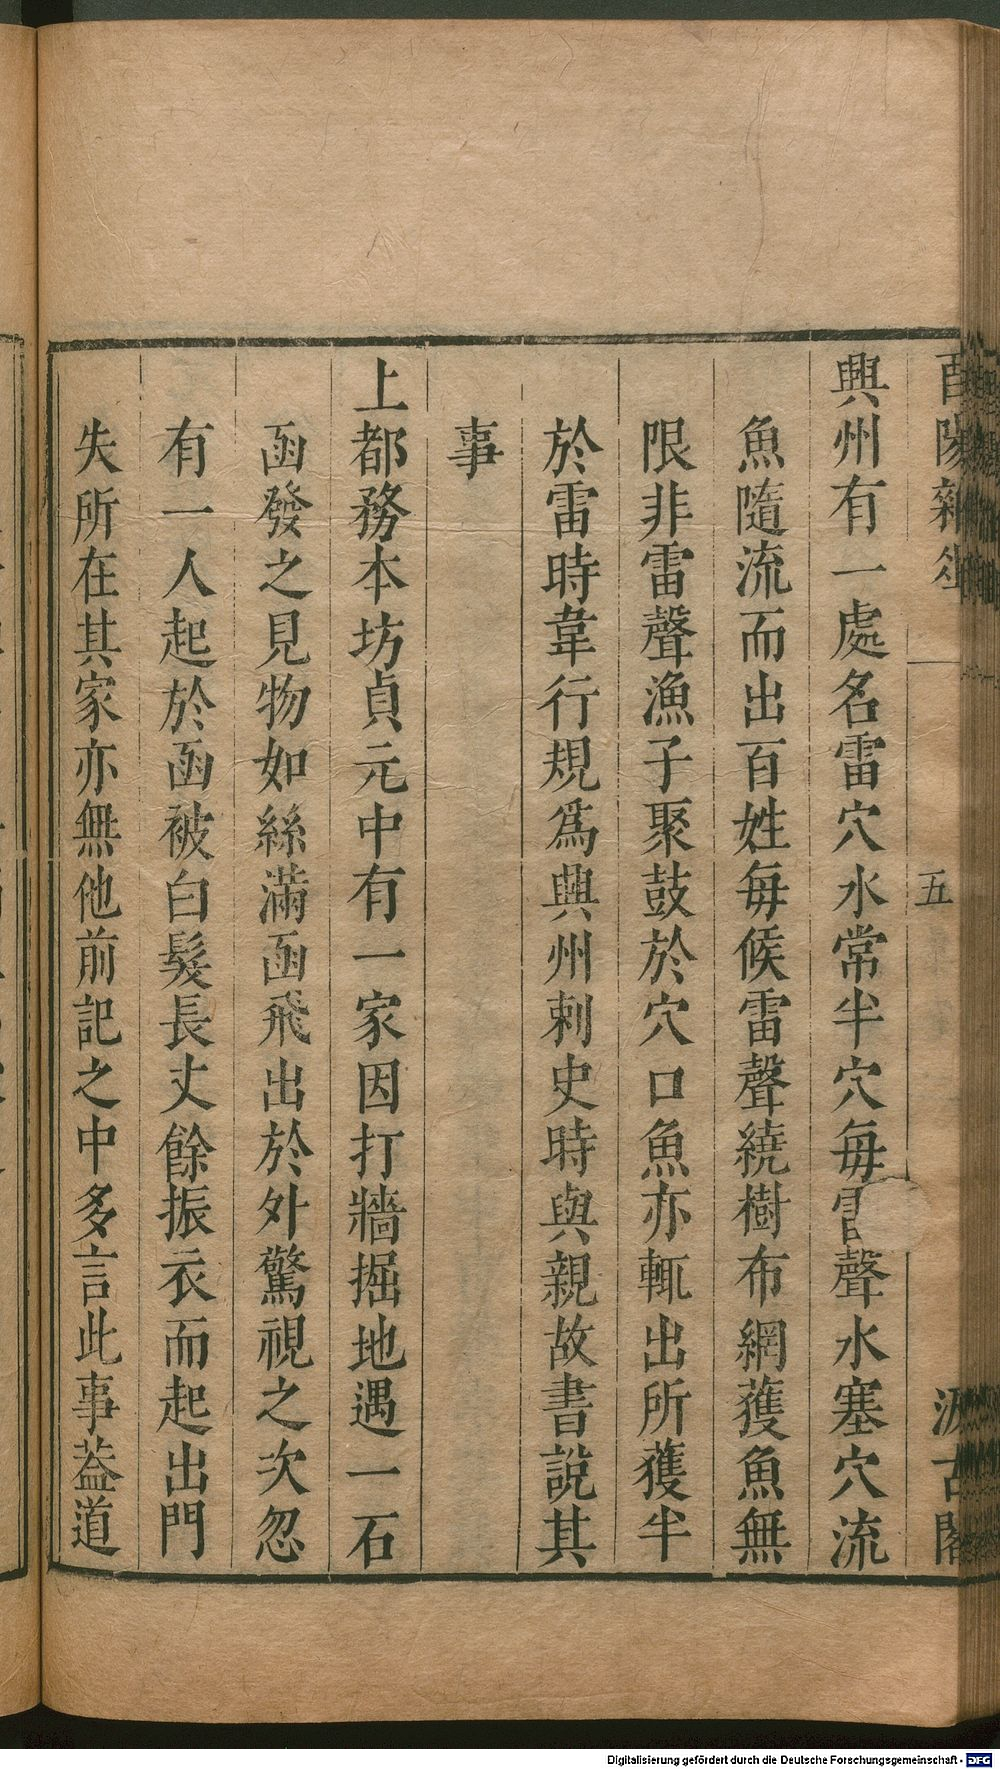 酉陽雜俎
五
汲古閣
興州有一處名雷穴水常半穴每雷聲水塞穴流
魚隨流而出百姓每候雷聲繞樹布網獲魚無
限非雷聲漁子聚鼓於穴口魚亦輒出所獲半
於雷時韋行規爲興州刺史時與親故書說其
事
上都務本坊貞元中有一家因打牆掘地遇一石
函發之見物如絲滿函飛出於外驚視之次忽
有一人起於函被白髮長丈餘振衣而起出門
失所在其家亦無他前記之中多言此事蓋道
Digitalisierung gefördert durch die Deutsche Forschungsgemeinschaft - DFG